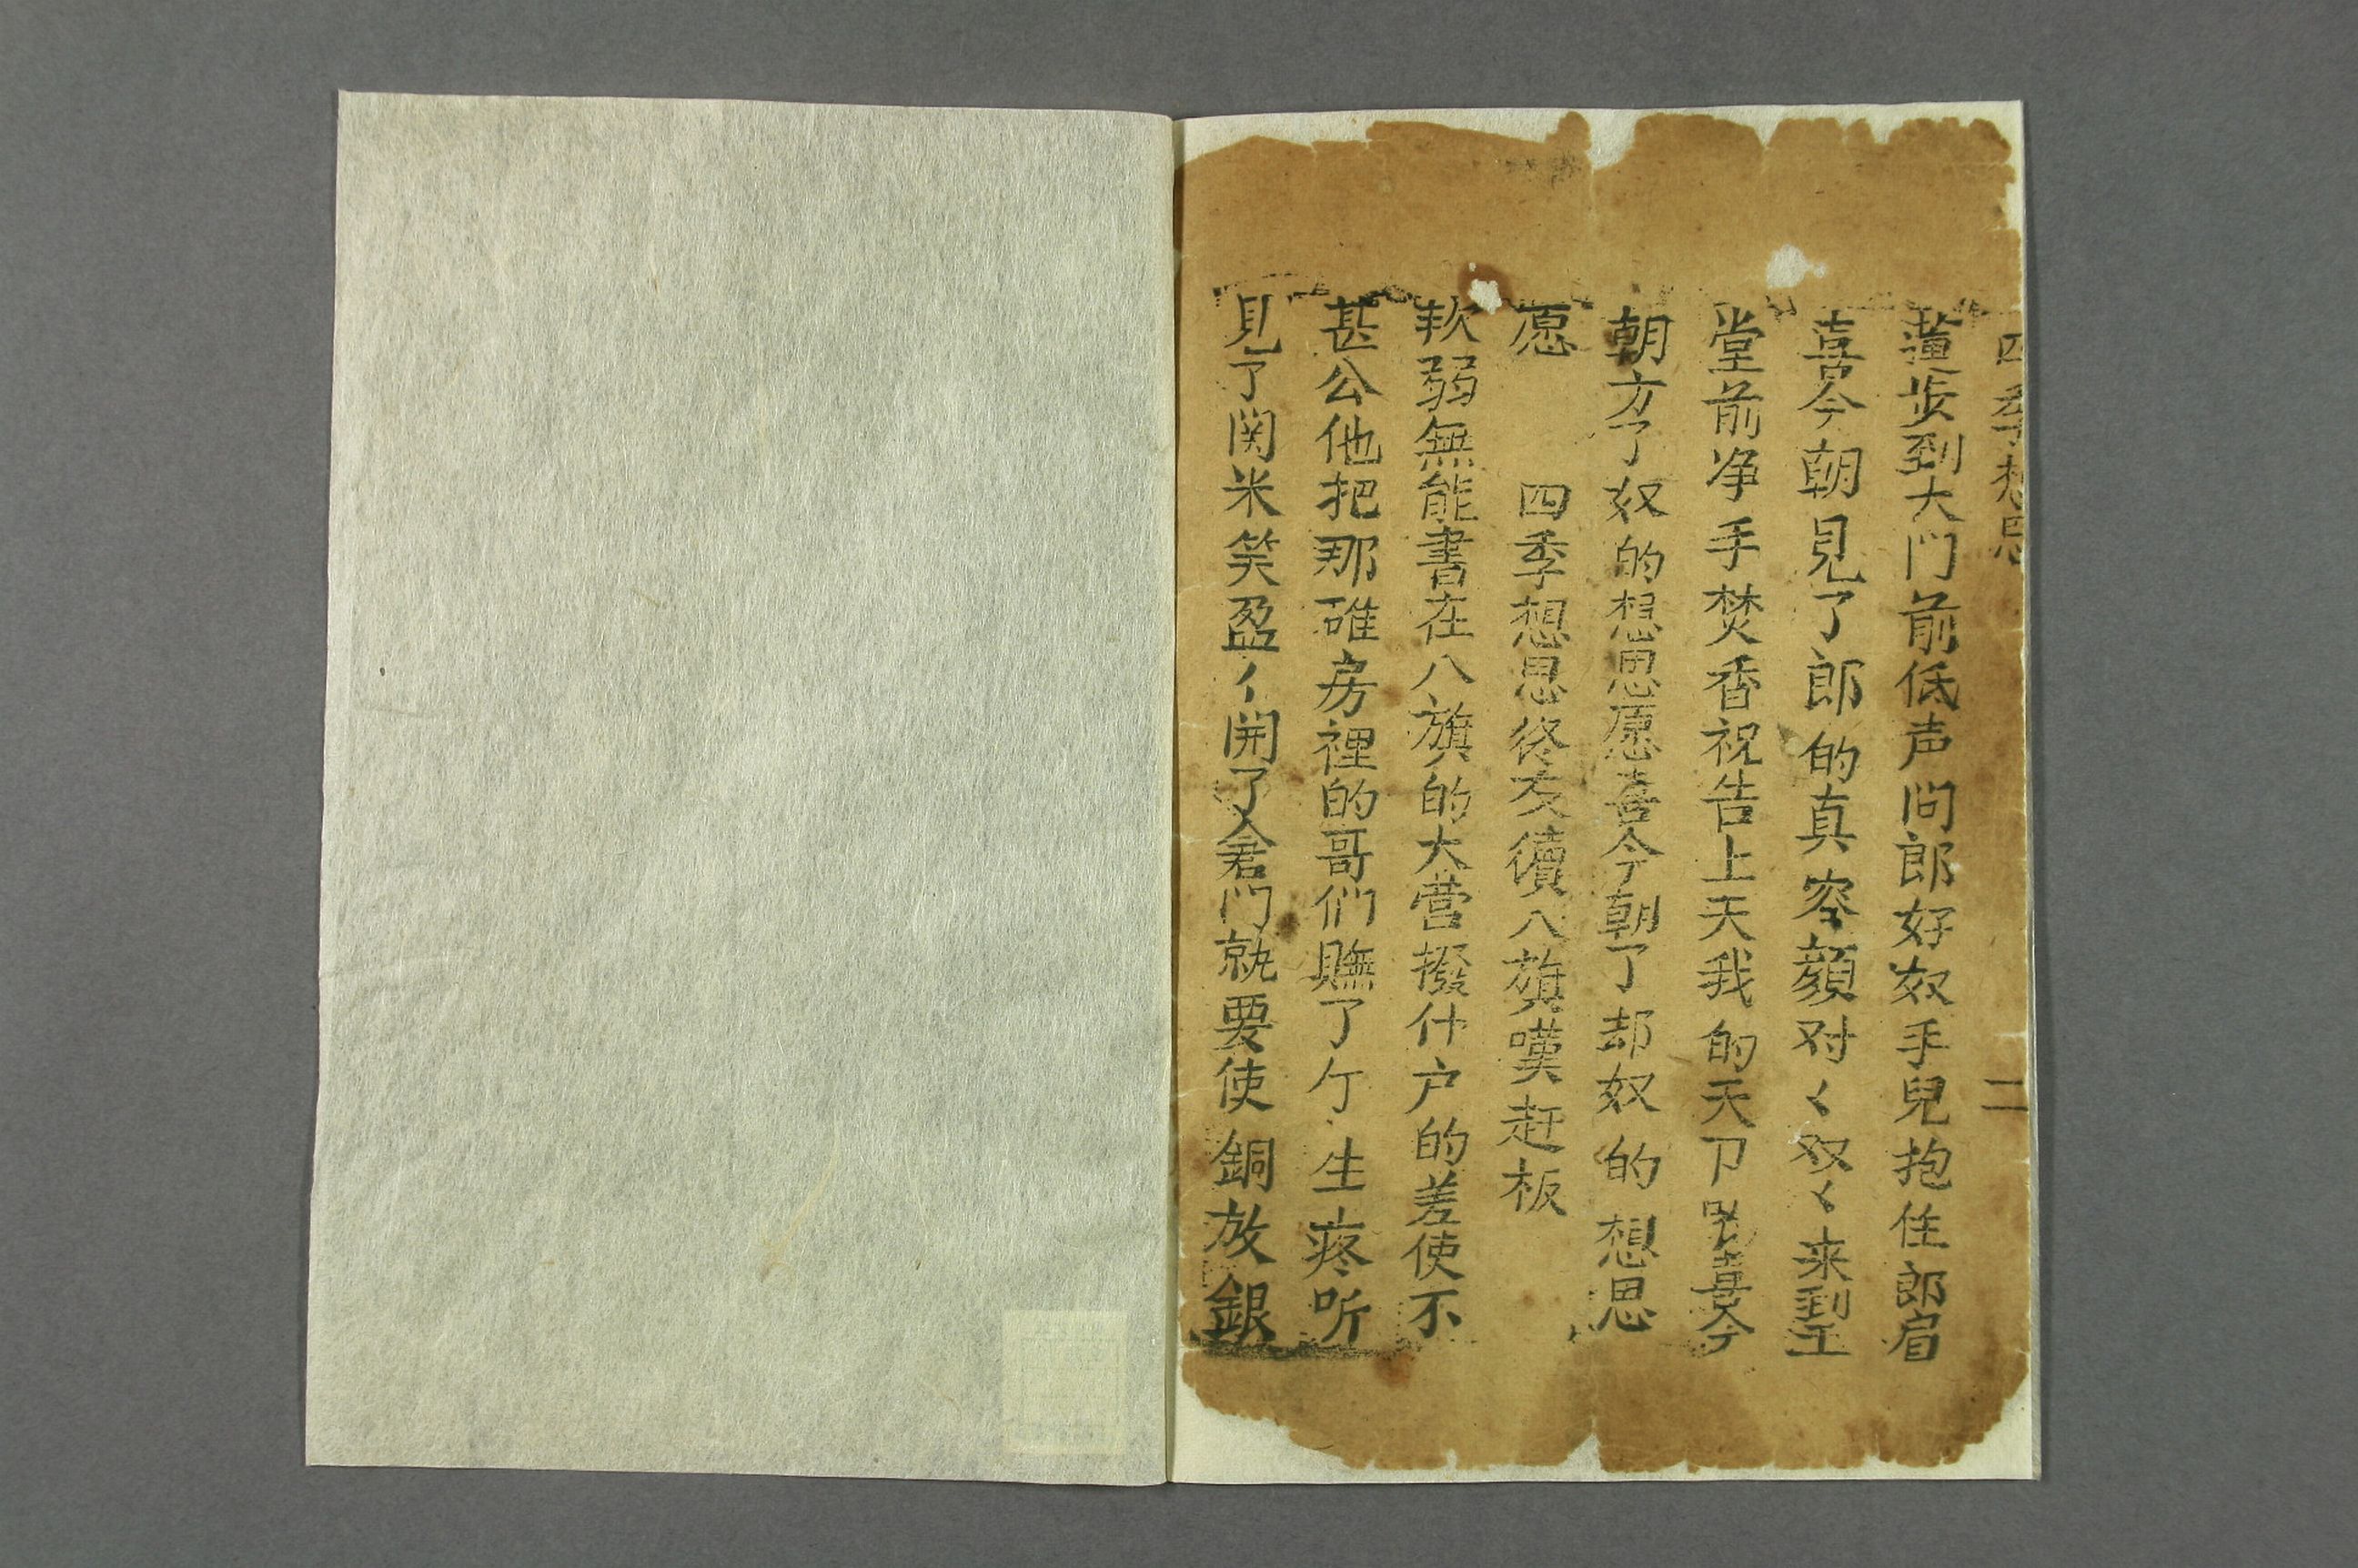 四季想思 二
蓮步到大门前低声问郎好奴手兒抱住郎肩
喜今朝見了郎的真容顔对〱双〱来到
堂前净手焚香祝告上天我的天卩喜今
朝方了奴的想思愿喜今朝了却奴的想思
愿 四季想思终 友續八旗嘆赶板
軟弱無能書在八旗的大营撥什户的差使不
甚公他把那碓房裡的哥们賺了个生疼听
見了関米笑盈〱開了倉门就要使銅放銀